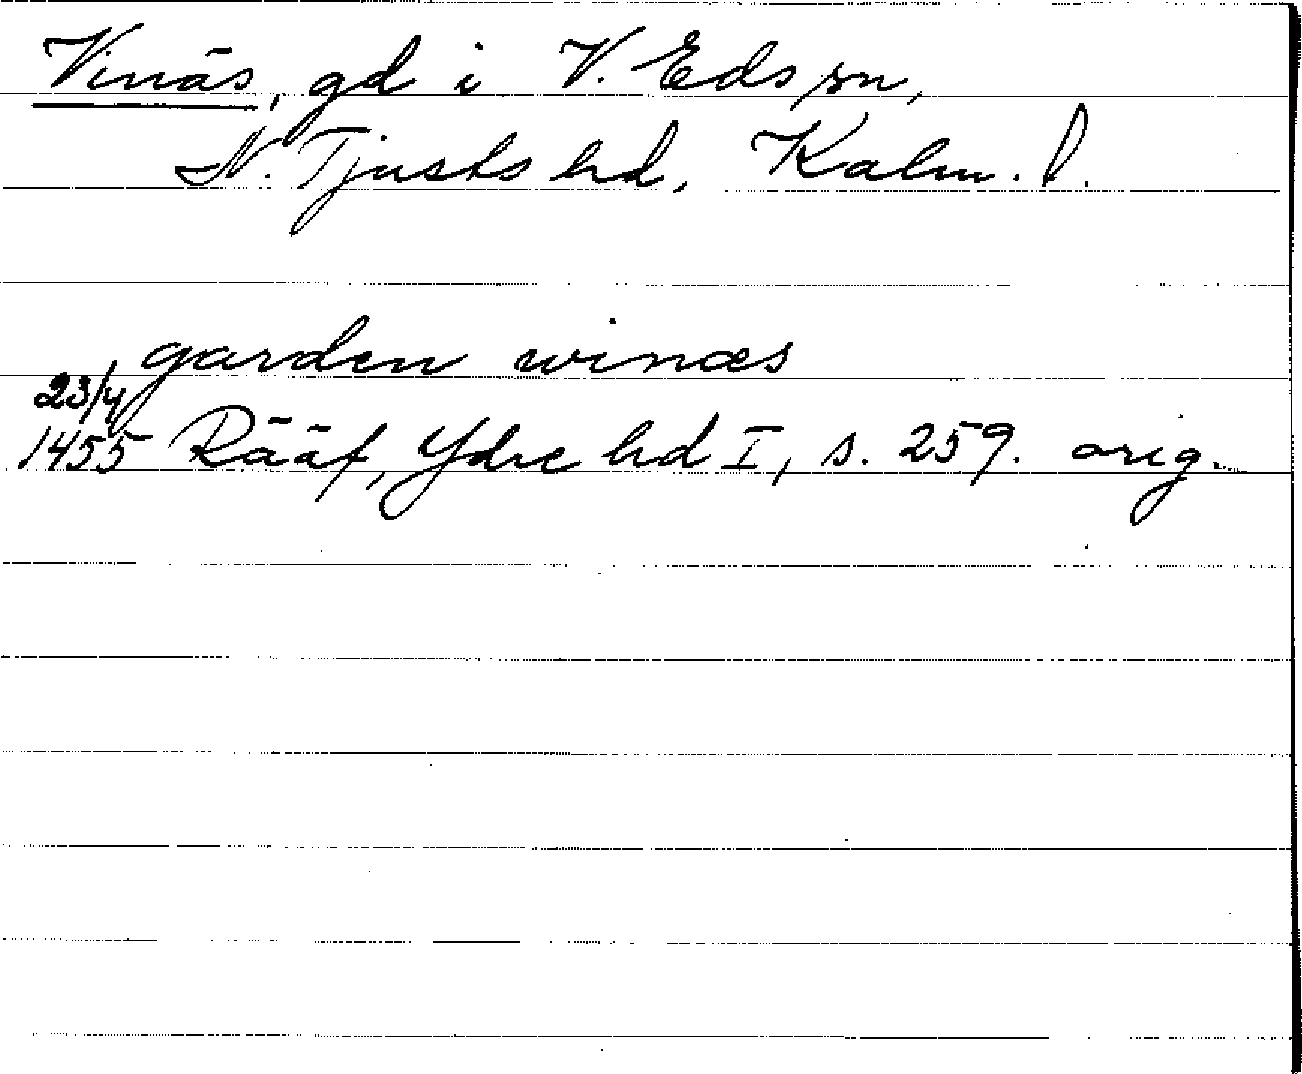 Vinäs, gd i V. Eds sn,
N. Tjusts hd, Kalm. l.
garden winæs
23/4
1455 Rääf, Ydre hd I, s. 259. orig.